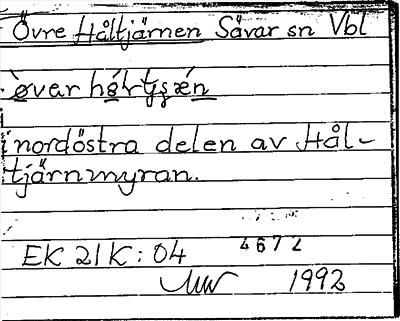 Övre Håltjärnen Sävar sn Vbl
i nordöstra delen av Hål-
tjärnmyran.
EK 21K:04
4672
1992